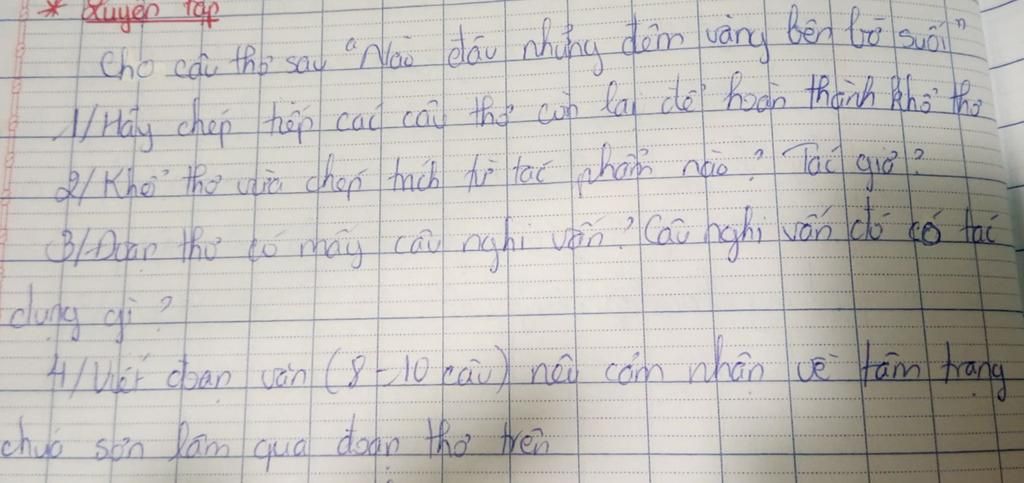 * Luyện tập
Cho câu thơ sau "Nào đâu những đêm vàng bên bờ suối"
1/ Hãy chép tiếp các câu thơ còn lại để hoàn thành khổ thơ
2/ Khổ thơ vừa chép trích từ tác phẩm nào? Tác giả?
3/ Đoạn thơ có mấy câu nghi vấn? Câu nghi vấn đó có tác
dụng gì?
4/ Viết đoạn văn (8-10 câu) nêu cảm nhận về tâm trạng
chúa sơn lâm qua đoạn thơ trên